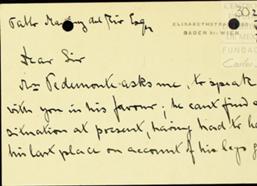 Pablo M del Rio Esqre
ELISABETHSTRASSE
BADEN BEI WIEN
302
Dear Sir
Mr Pedemonte asks me, to speak
with you in his favour; he cant find a
situation at present, having had to
his last place on account of his legs